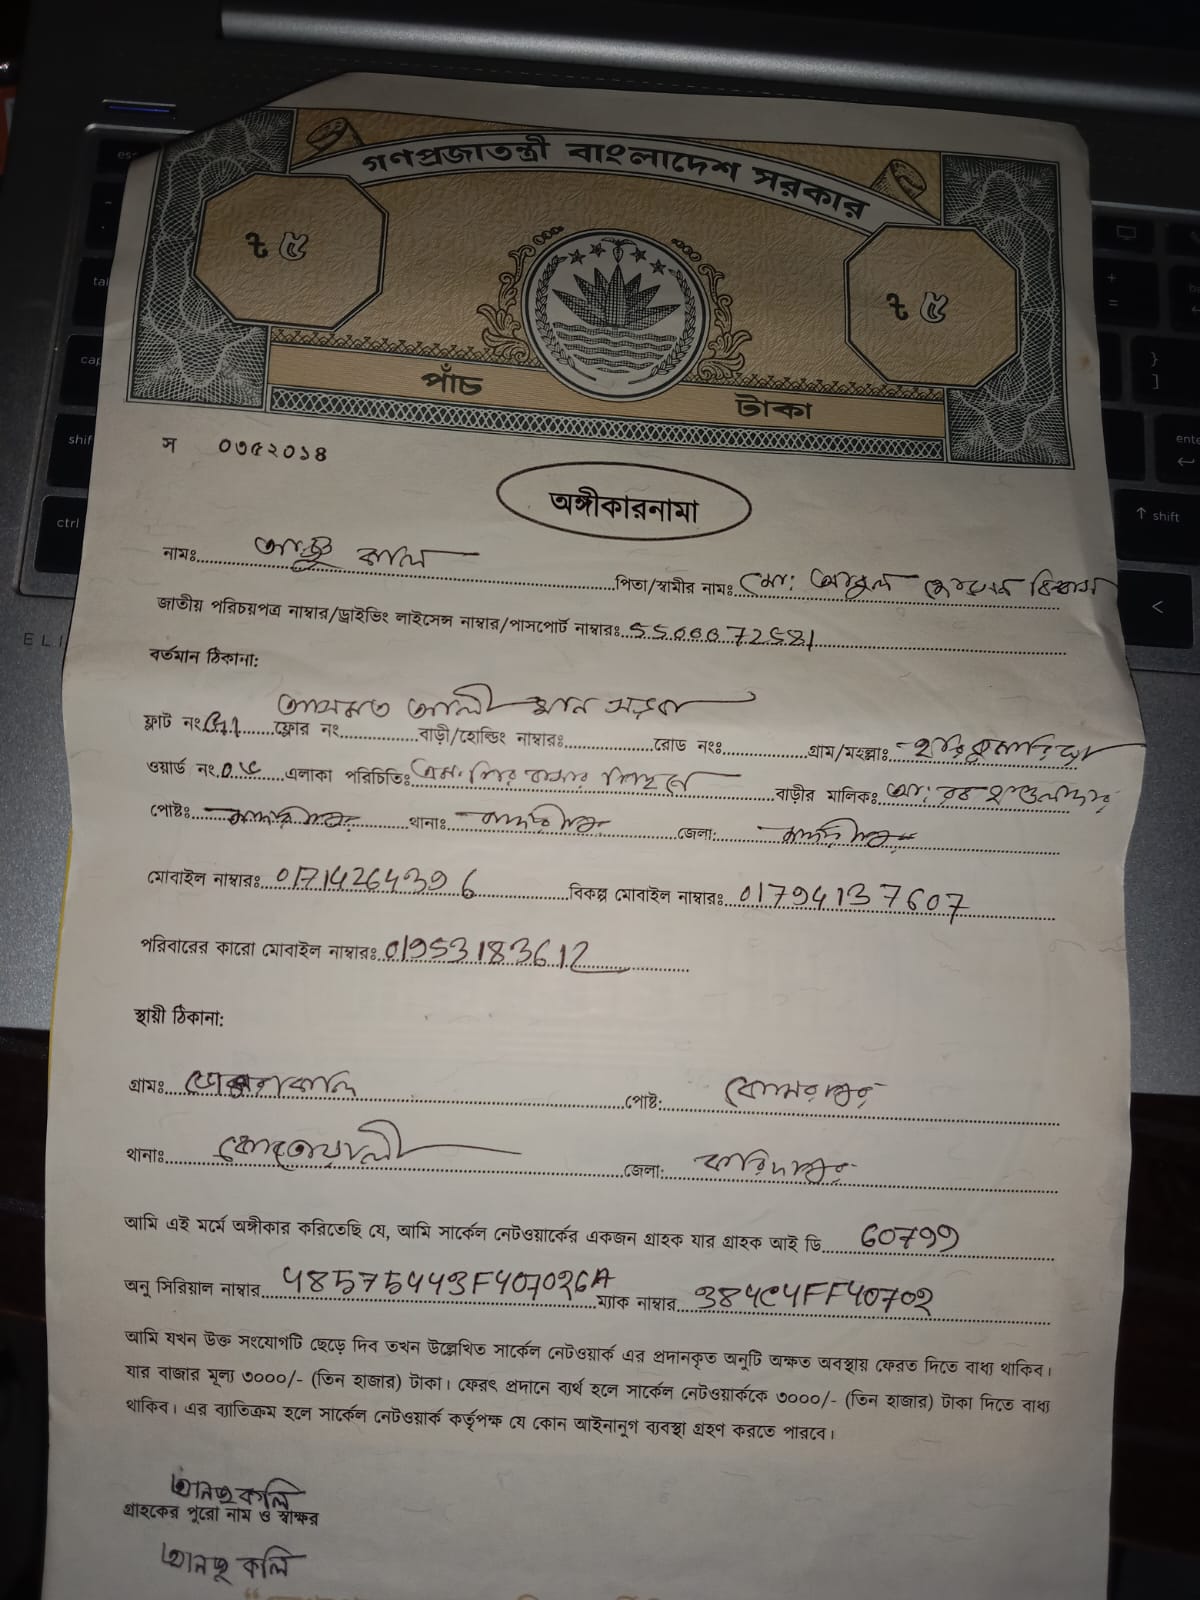 গণপ্রজাতন্ত্রী বাংলাদেশ সরকার
ট ৫ ট ৫
পাঁচ টাকা
স ০৩৫২০১৪
অঙ্গীকারনামা
নামঃ পিতা/স্বামীর নামঃ মো:
জাতীয় পরিচয়পত্র নাম্বার/ড্রাইভিং লাইসেন্স নাম্বার/পাসপোর্ট নাম্বারঃ
বর্তমান ঠিকানা:
আসমত আলী খান সড়ক
ফ্লাট নং ফ্লোর নং বাড়ী/হোল্ডিং নাম্বারঃ রোড নংঃ গ্রাম/মহল্লাঃ হরিকুমারিয়া
ওয়ার্ড নং এলাকা পরিচিতিঃ বাড়ীর মালিকঃ
পোষ্টঃ মাদারীপুর থানাঃ মাদারীপুর জেলা: মাদারীপুর
মোবাইল নাম্বারঃ 01714264396 বিকল্প মোবাইল নাম্বারঃ 01794137607
পরিবারের কারো মোবাইল নাম্বারঃ 01953183612
স্থায়ী ঠিকানা:
গ্রামঃ পোষ্ট:
থানাঃ কোতোয়ালী জেলা: ফরিদপুর
আমি এই মর্মে অঙ্গীকার করিতেছি যে, আমি সার্কেল নেটওয়ার্কের একজন গ্রাহক যার গ্রাহক আই ডি 60799
অনু সিরিয়াল নাম্বার 48575443F407026A ম্যাক নাম্বার 384C4FF40702
আমি যখন উক্ত সংযোগটি ছেড়ে দিব তখন উল্লেখিত সার্কেল নেটওয়ার্ক এর প্রদানকৃত অনুটি অক্ষত অবস্থায় ফেরত দিতে বাধ্য থাকিব।
যার বাজার মূল্য ৩০০০/- (তিন হাজার) টাকা। ফেরৎ প্রদানে ব্যর্থ হলে সার্কেল নেটওয়ার্ককে ৩০০০/- (তিন হাজার) টাকা দিতে বাধ্য
থাকিব। এর ব্যতিক্রম হলে সার্কেল নেটওয়ার্ক কর্তৃপক্ষ যে কোন আইনানুগ ব্যবস্থা গ্রহণ করতে পারবে।
আনজু কলি
গ্রাহকের পুরো নাম ও স্বাক্ষর
আনজু কলি